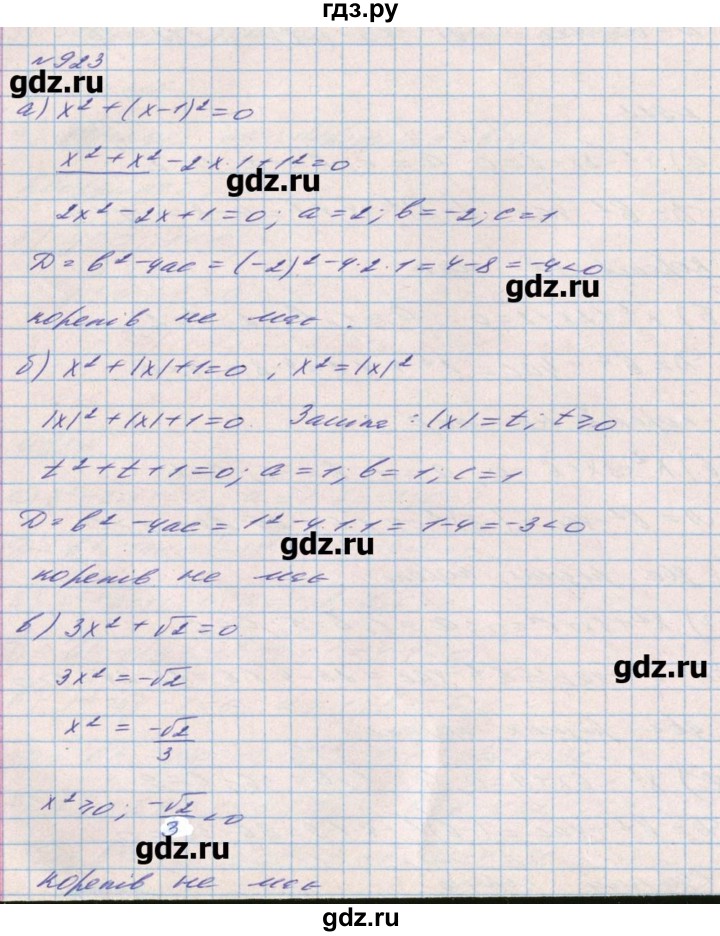 гдз.ру
№923
gdz.ru
а) x² + (x-1)² = 0
x² + x² - 2·x·1 + 1² = 0
gdz.ru
2x² - 2x + 1 = 0; a = 2; b = -2; c = 1
D = b² - 4ac = (-2)² - 4·2·1 = 4 - 8 = -4 < 0
gdz.ru
коренів не має.
б) x² + |x| + 1 = 0; x² = |x|²
|x|² + |x| + 1 = 0. Заміна: |x| = t; t ≥ 0
t² + t + 1 = 0; a = 1; b = 1; c = 1
D = b² - 4ac = 1² - 4·1·1 = 1 - 4 = -3 < 0
gdz.ru
коренів не має
в) 3x² + √2 = 0
gdz.ru
3x² = -√2
x² = -√2/3
x² ≥ 0; -√2/3 < 0
gdz.ru
коренів не має
gdz.ru